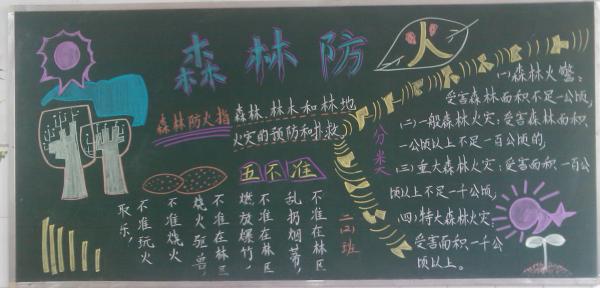 森林防火
森林防火指
森林、林木和林地
火灾的预防和扑救
五不准
不准在林区
乱扔烟蒂，
不准在林区
燃放爆竹，
不准在林区
烧火驱兽，
不准烧火
不准玩火
取乐，
二(2)班
分类
(一)森林火警：
受害森林面积不足一公顷，
(二)一般森林火灾：受害森林面积，
一公顷以上不足一百公顷的，
(三)重大森林火灾：受害面积一百公
顷以上不足一千公顷，
(四)特大森林火灾：
受害面积一千公
顷以上。